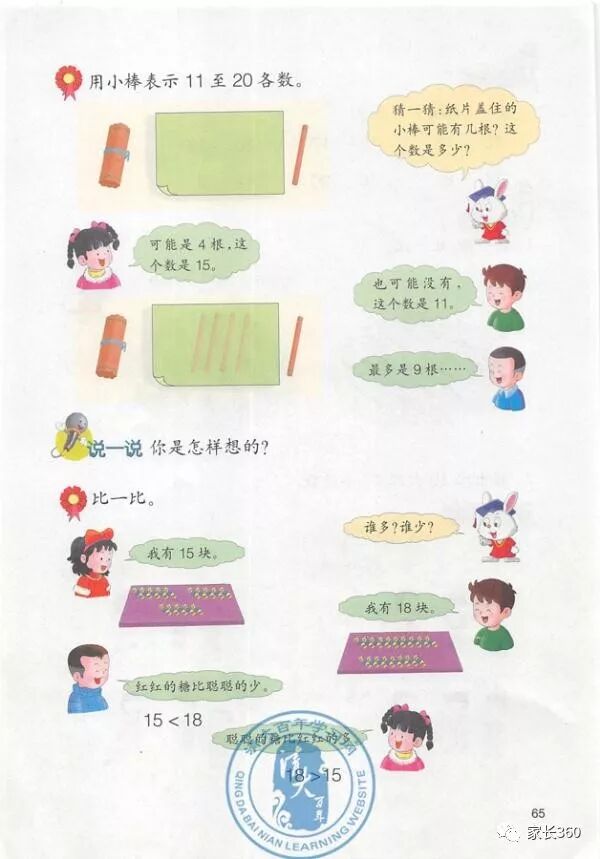 用小棒表示 11 至 20 各数。
猜一猜:纸片盖住的
小棒可能有几根? 这
个数是多少?
可能是 4 根,这
个数是 15。
也可能没有,
这个数是 11。
最多是 9 根……
说一说 你是怎样想的?
比一比。
谁多? 谁少?
我有 15 块。
我有 18 块。
红红的糖比聪聪的少。
15 < 18
聪聪的糖比红红的多
18 >15
QING DA BAI NIAN LEARNING WEBSITE
65
家长360